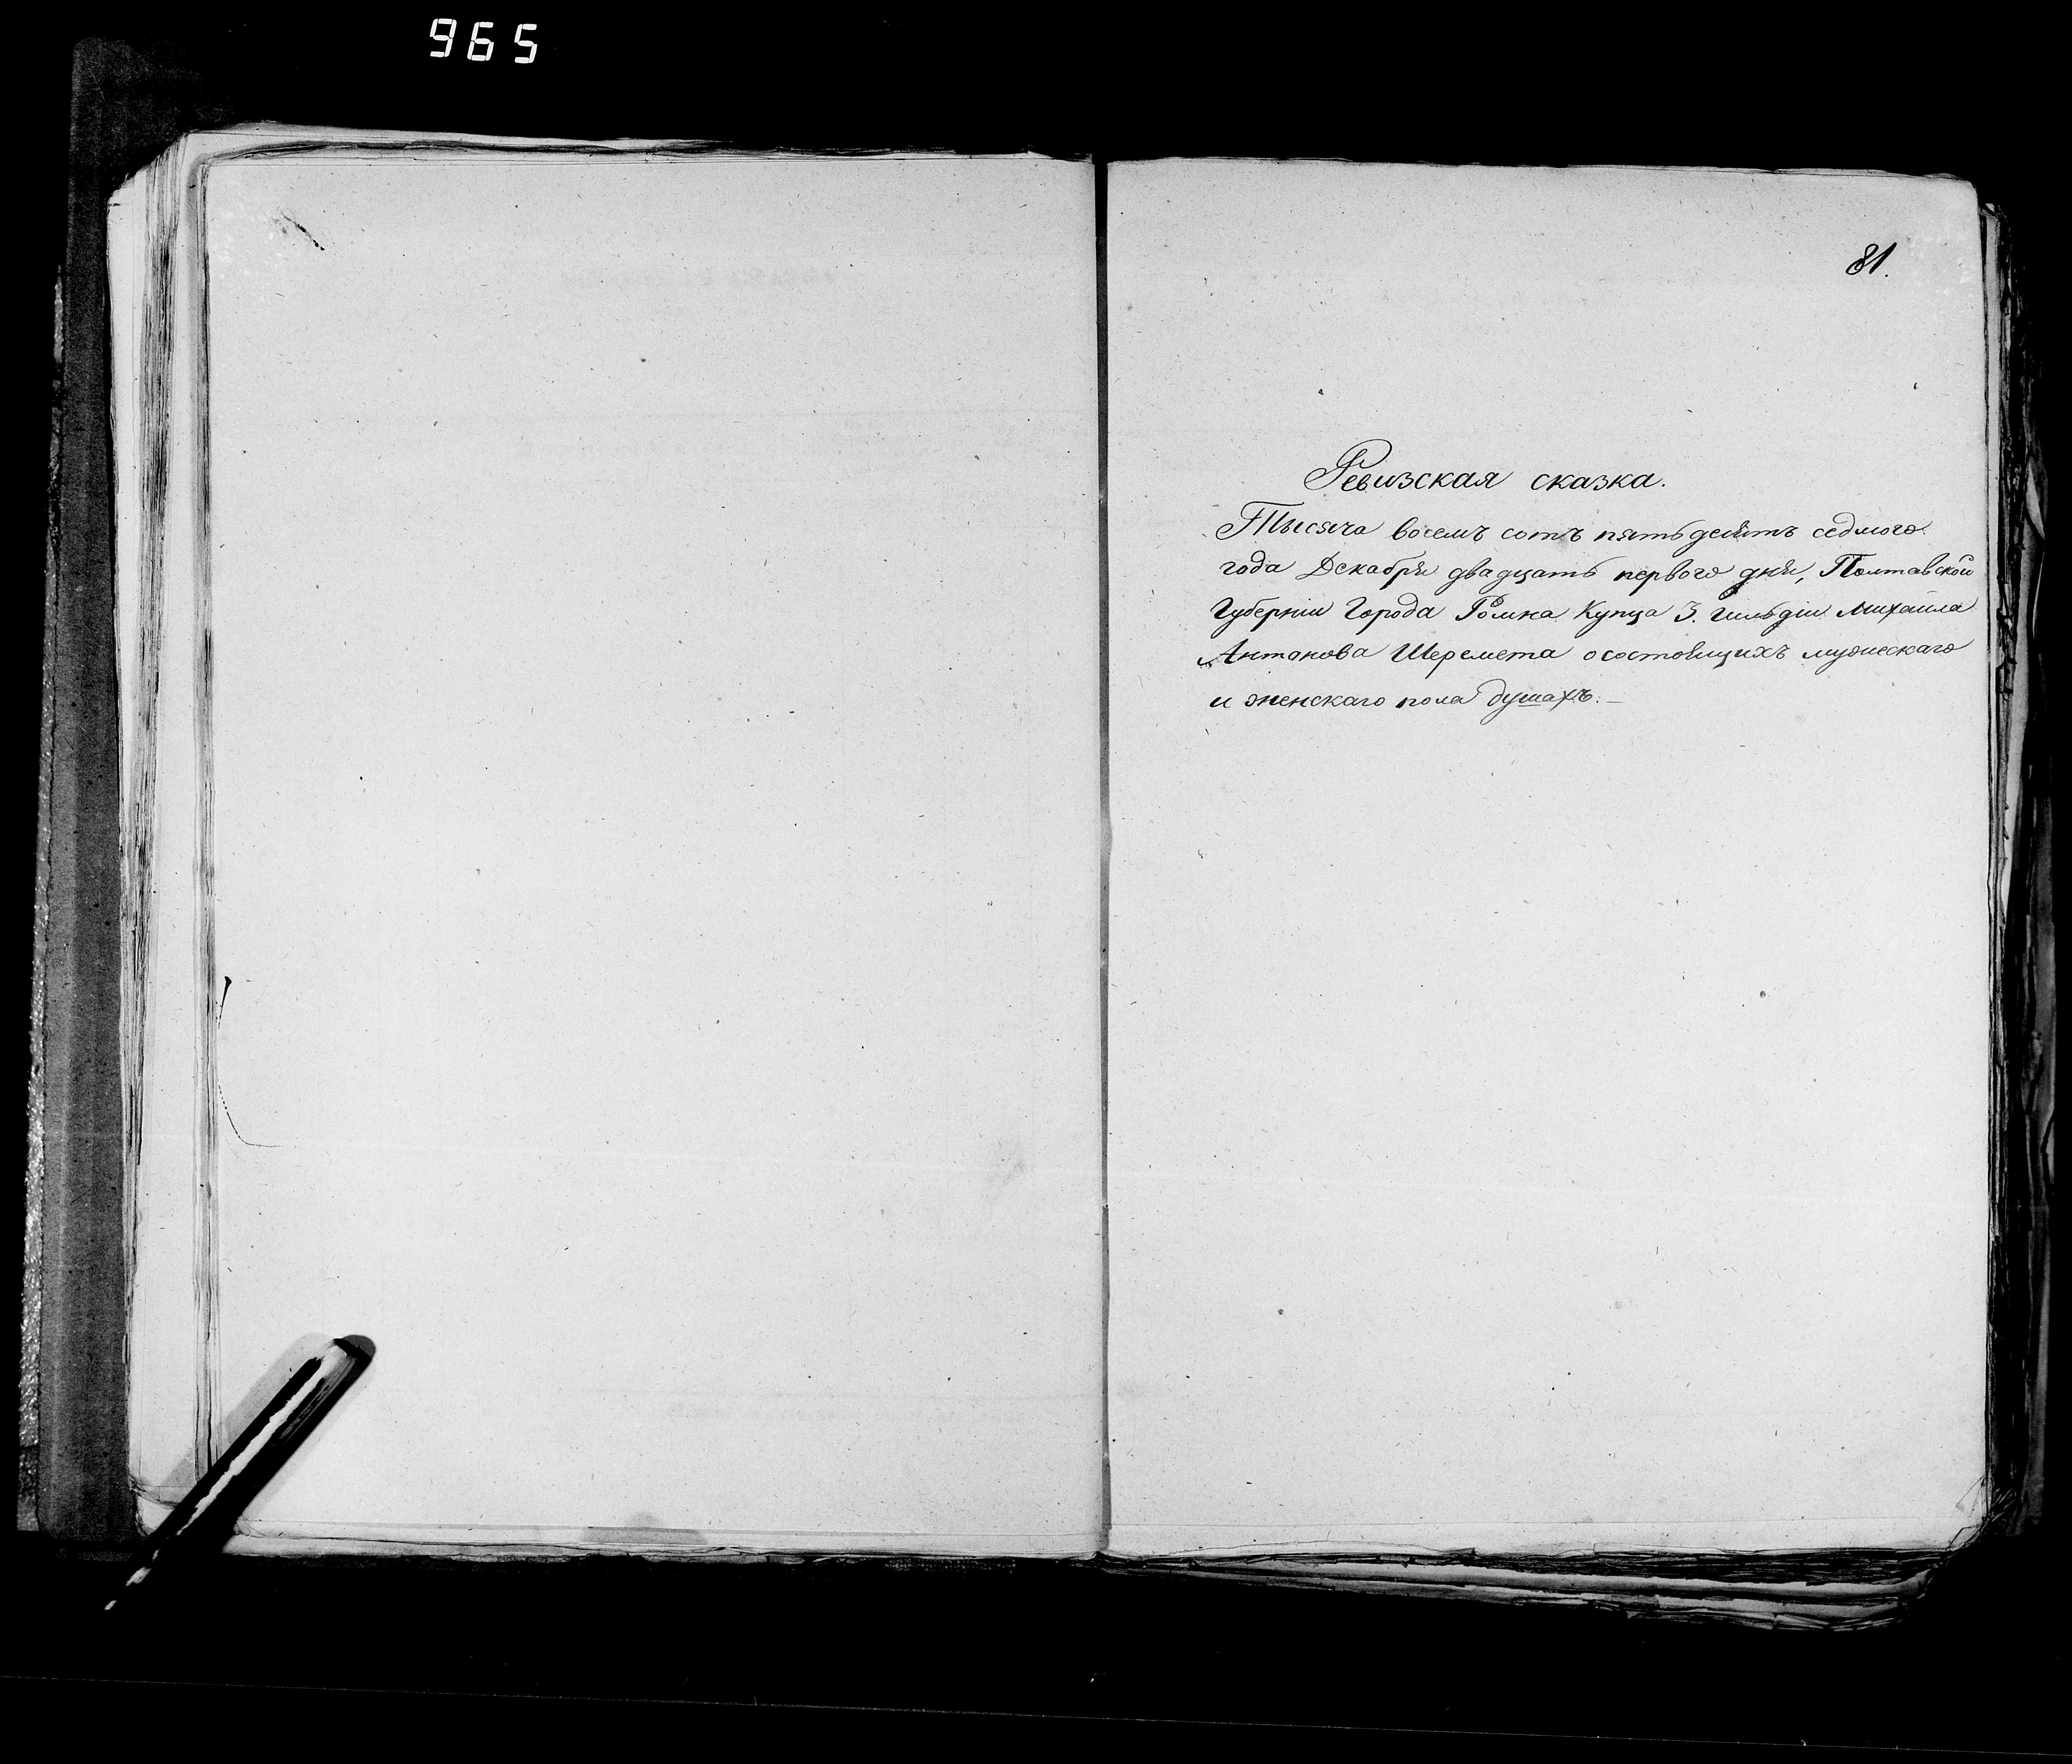 965
81.
Ревизская сказка.
Тысяча восемъ сотъ пятьдесятъ седмого
года Декабря двадцать первого дня, Полтавской
Губерніи Города Ромна Купца 3. гильдіи Михайла
Антонова Шеремета о состоящихъ мужескаго
и женскаго пола душахъ. —